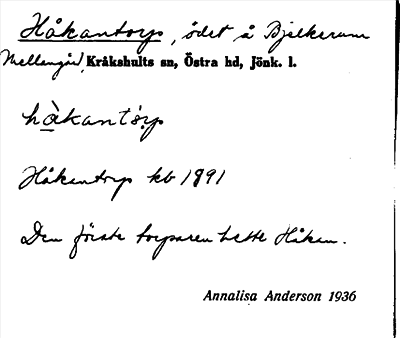 Håkantorp, ödet å Bjelkerum
Mellangård, Kråkshults sn, Östra hd, Jönk. l.
hàkantórp
Håkantorp kb 1891
Den förste torparen hette Håkan.
Annalisa Anderson 1936